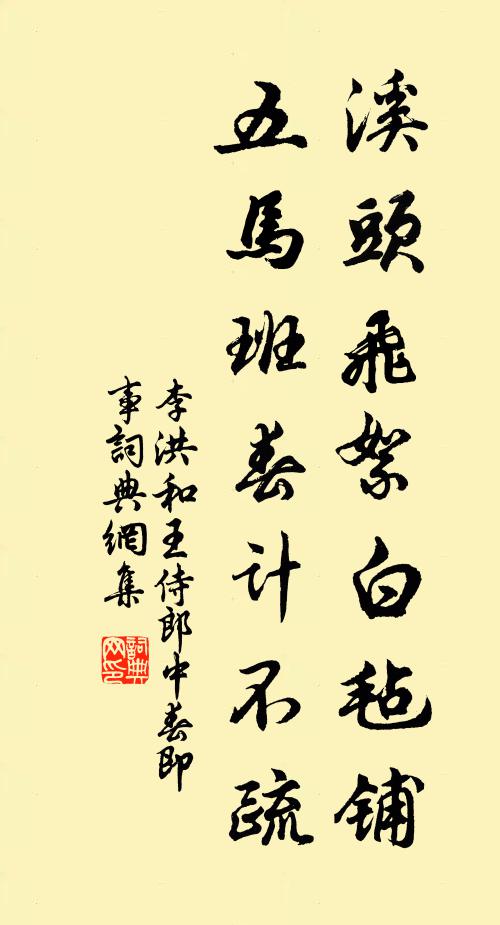 溪頭飛絮白毡鋪
五馬班春計不疏
李洪和王侍郎中春即
事詞典網集
詞典
网印